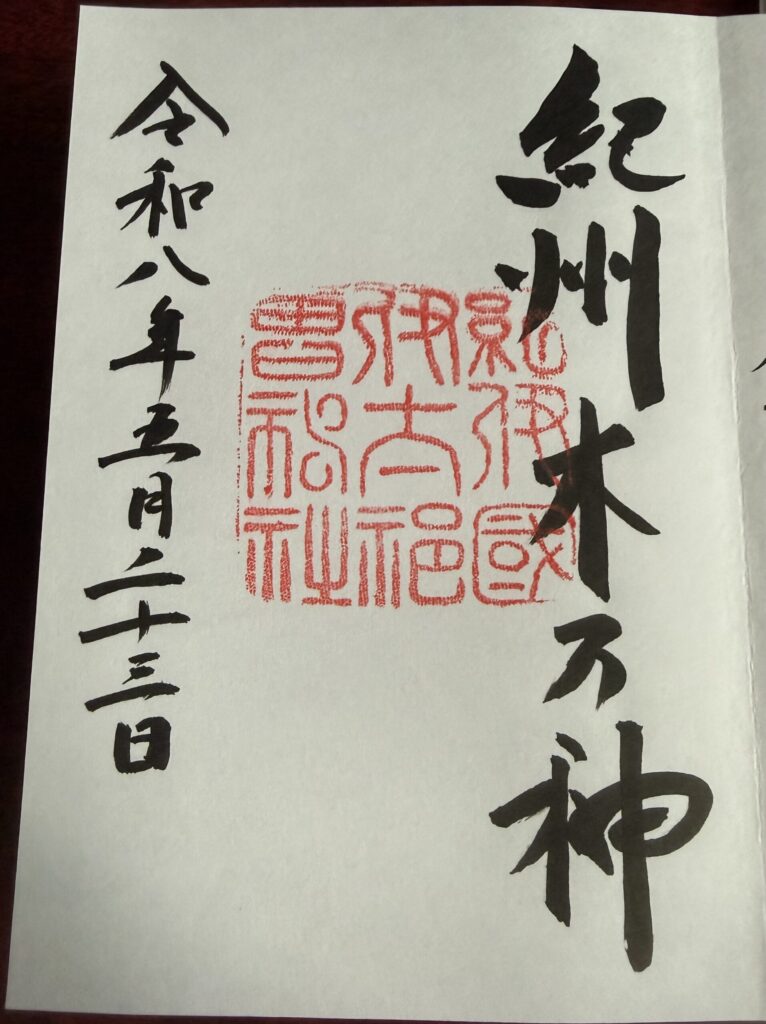 紀州木乃神
紀伊國
伊太祁
曽神社
令和八年五月二十三日